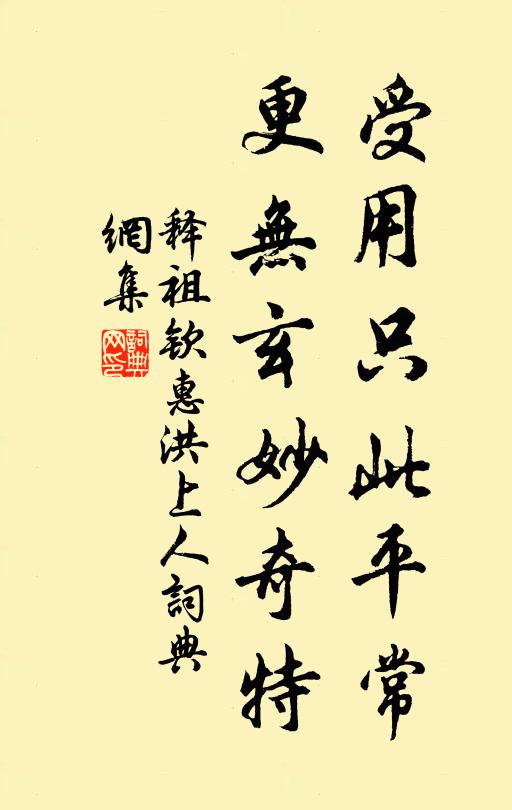 受用只此平常
更無玄妙奇特
释祖欽惠洪上人詞典
網集
詞典
网印